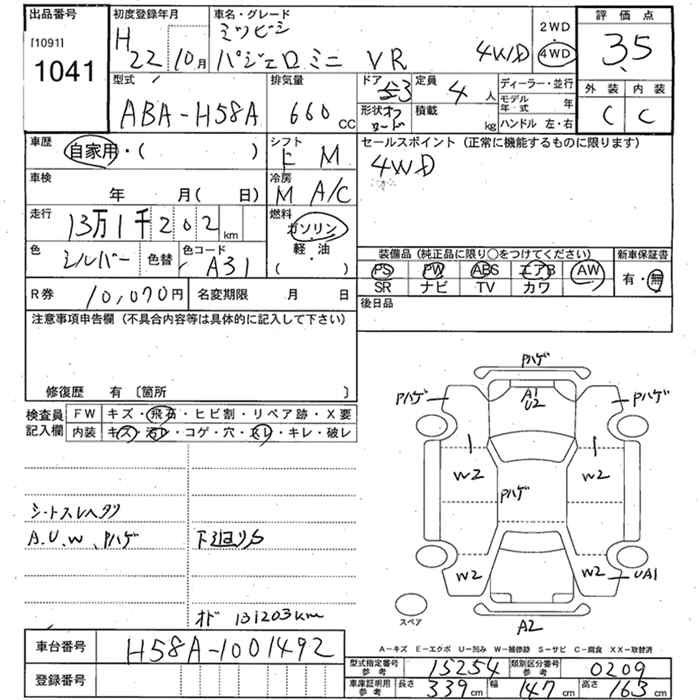 出品番号
[1091]
1041
初度登録年月
H
22 10月
車名・グレード
ミツビシ
パジェロミニ VR 4WD
2WD
4WD
評価点
3.5
外装 内装
C C
型式
ABA-H58A
排気量
660 CC
ドア 3
形状
定員 4人
積載 kg
ディーラー・並行
モデル年式 年
ハンドル 左・右
車歴
自家用・( )
シフト
F M
セールスポイント (正常に機能するものに限ります)
4WD
車検
年 月( 日)
冷房
M A/C
走行
13万1千202km
燃料
ガソリン
軽・油
( )
色
シルバー 色替
色コード
A31
装備品 (純正品に限り○をつけてください)
PS PW ABS エアB AW
SR ナビ TV カワ
新車保証書
有・無
R券 10,070円
名変期限 月 日
後日品
注意事項申告欄 (不具合内容等は具体的に記入して下さい)
修復歴 有 〔箇所 〕
検査員記入欄
FW キズ・飛石・ヒビ割・リペア跡・X要
内装 キズ・汚レ・コゲ・穴・スレ・キレ・破レ
シートスレヘタリ
A.U.W、Pハゲ
下廻りS
オド 131203km
Pハゲ
Pハゲ
A1
U2
Pハゲ
W2
W2
Pハゲ
W2
W2
UA1
A2
スペア
A-キズ E-エクボ U-凹み W-補修跡 S-サビ C-腐食 XX-取替済
車台番号 H58A-1001492
登録番号
型式指定番号 参考 15254
類別区分番号 参考 0209
車庫証明用 参考 長さ 339cm 幅 147cm 高さ 163cm